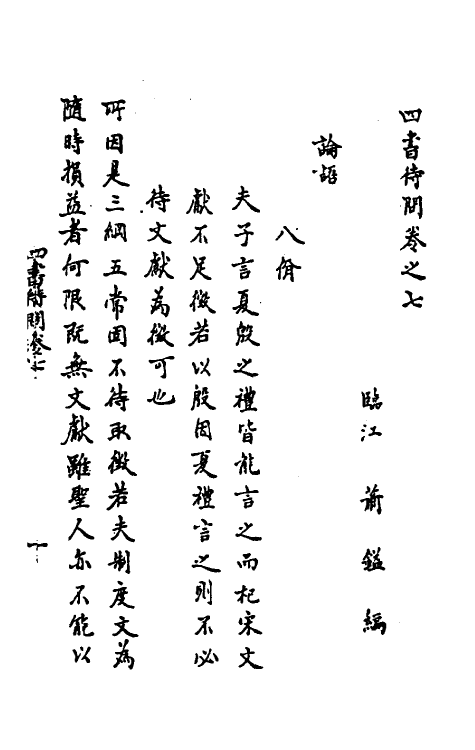 四書待問卷之七
臨江 蕭 鎰 編
論語
八佾
夫子言夏殷之禮皆能言之而杞宋文
獻不足徵若以殷因夏禮言之則不必
待文獻為徵可也
所因是三綱五常固不待取徵若夫制度文為
隨時損益者何限既無文獻雖聖人亦不能以
四書待問卷七
一